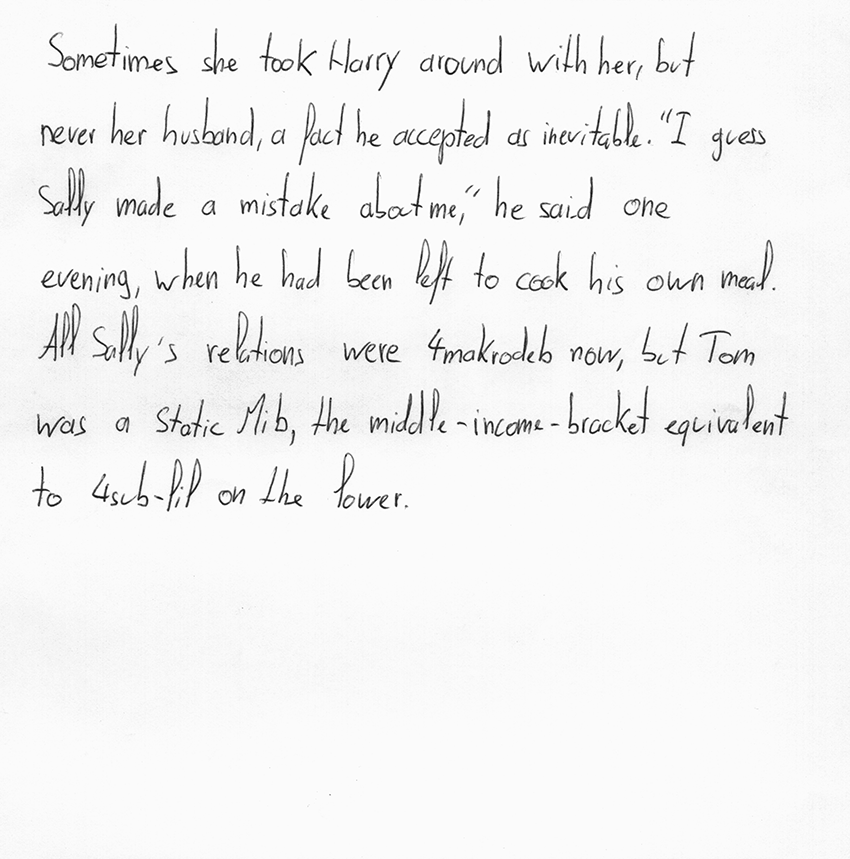 Sometimes she took Harry around with her, but
never her husband, a fact he accepted as inevitable. "I guess
Sally made a mistake about me," he said one
evening, when he had been left to cook his own meal.
All Sally's relations were 4makrodeb now, but Tom
was a Static Mib, the middle-income-bracket equivalent
to 4sub-fil on the lower.